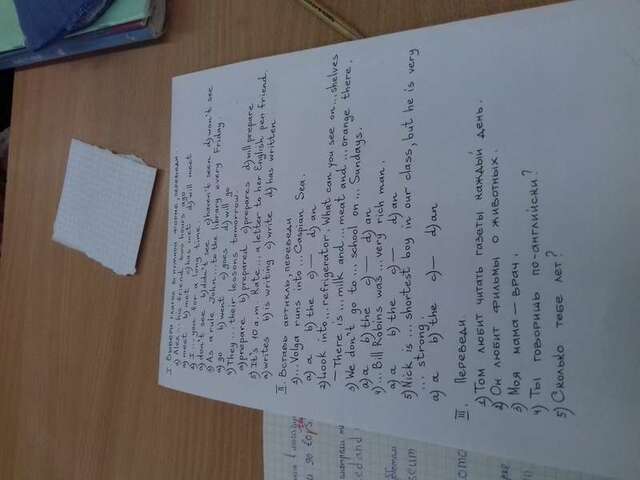 I. Выбери глагол в нужной форме, переведи.
1) Alex ... his friend two hours ago.
a) meet b) met c) has met d) will meet
2) I ... you for a long time.
a) don't see b) didn't see c) haven't seen d) won't see
3) As a rule John ... to the library every Friday.
a) go b) went c) goes d) will go
4) They ... their lessons tomorrow.
a) prepare b) prepared c) prepares d) will prepare
5) It's 10 a.m. Kate ... a letter to her English pen friend.
a) writes b) is writing c) write d) has written
II. Вставь артикль, переведи
1) ... Volga runs into ... Caspian Sea.
a) a b) the c) — d) an
2) Look into ... refrigerator. What can you see on ... shelves
— There is ... milk and ... meat and ... orange there.
3) We don't go to ... school on ... Sundays.
a) a b) the c) — d) an
4) ... Bill Robins was ... very rich man.
a) a b) the c) — d) an
5) Nick is ... shortest boy in our class, but he is very
... strong.
a) a b) the c) — d) an
III. Переведи.
1) Том любит читать газеты каждый день.
2) Он любит фильмы о животных.
3) Моя мама — врач.
4) Ты говоришь по-английски?
5) Сколько тебе лет?